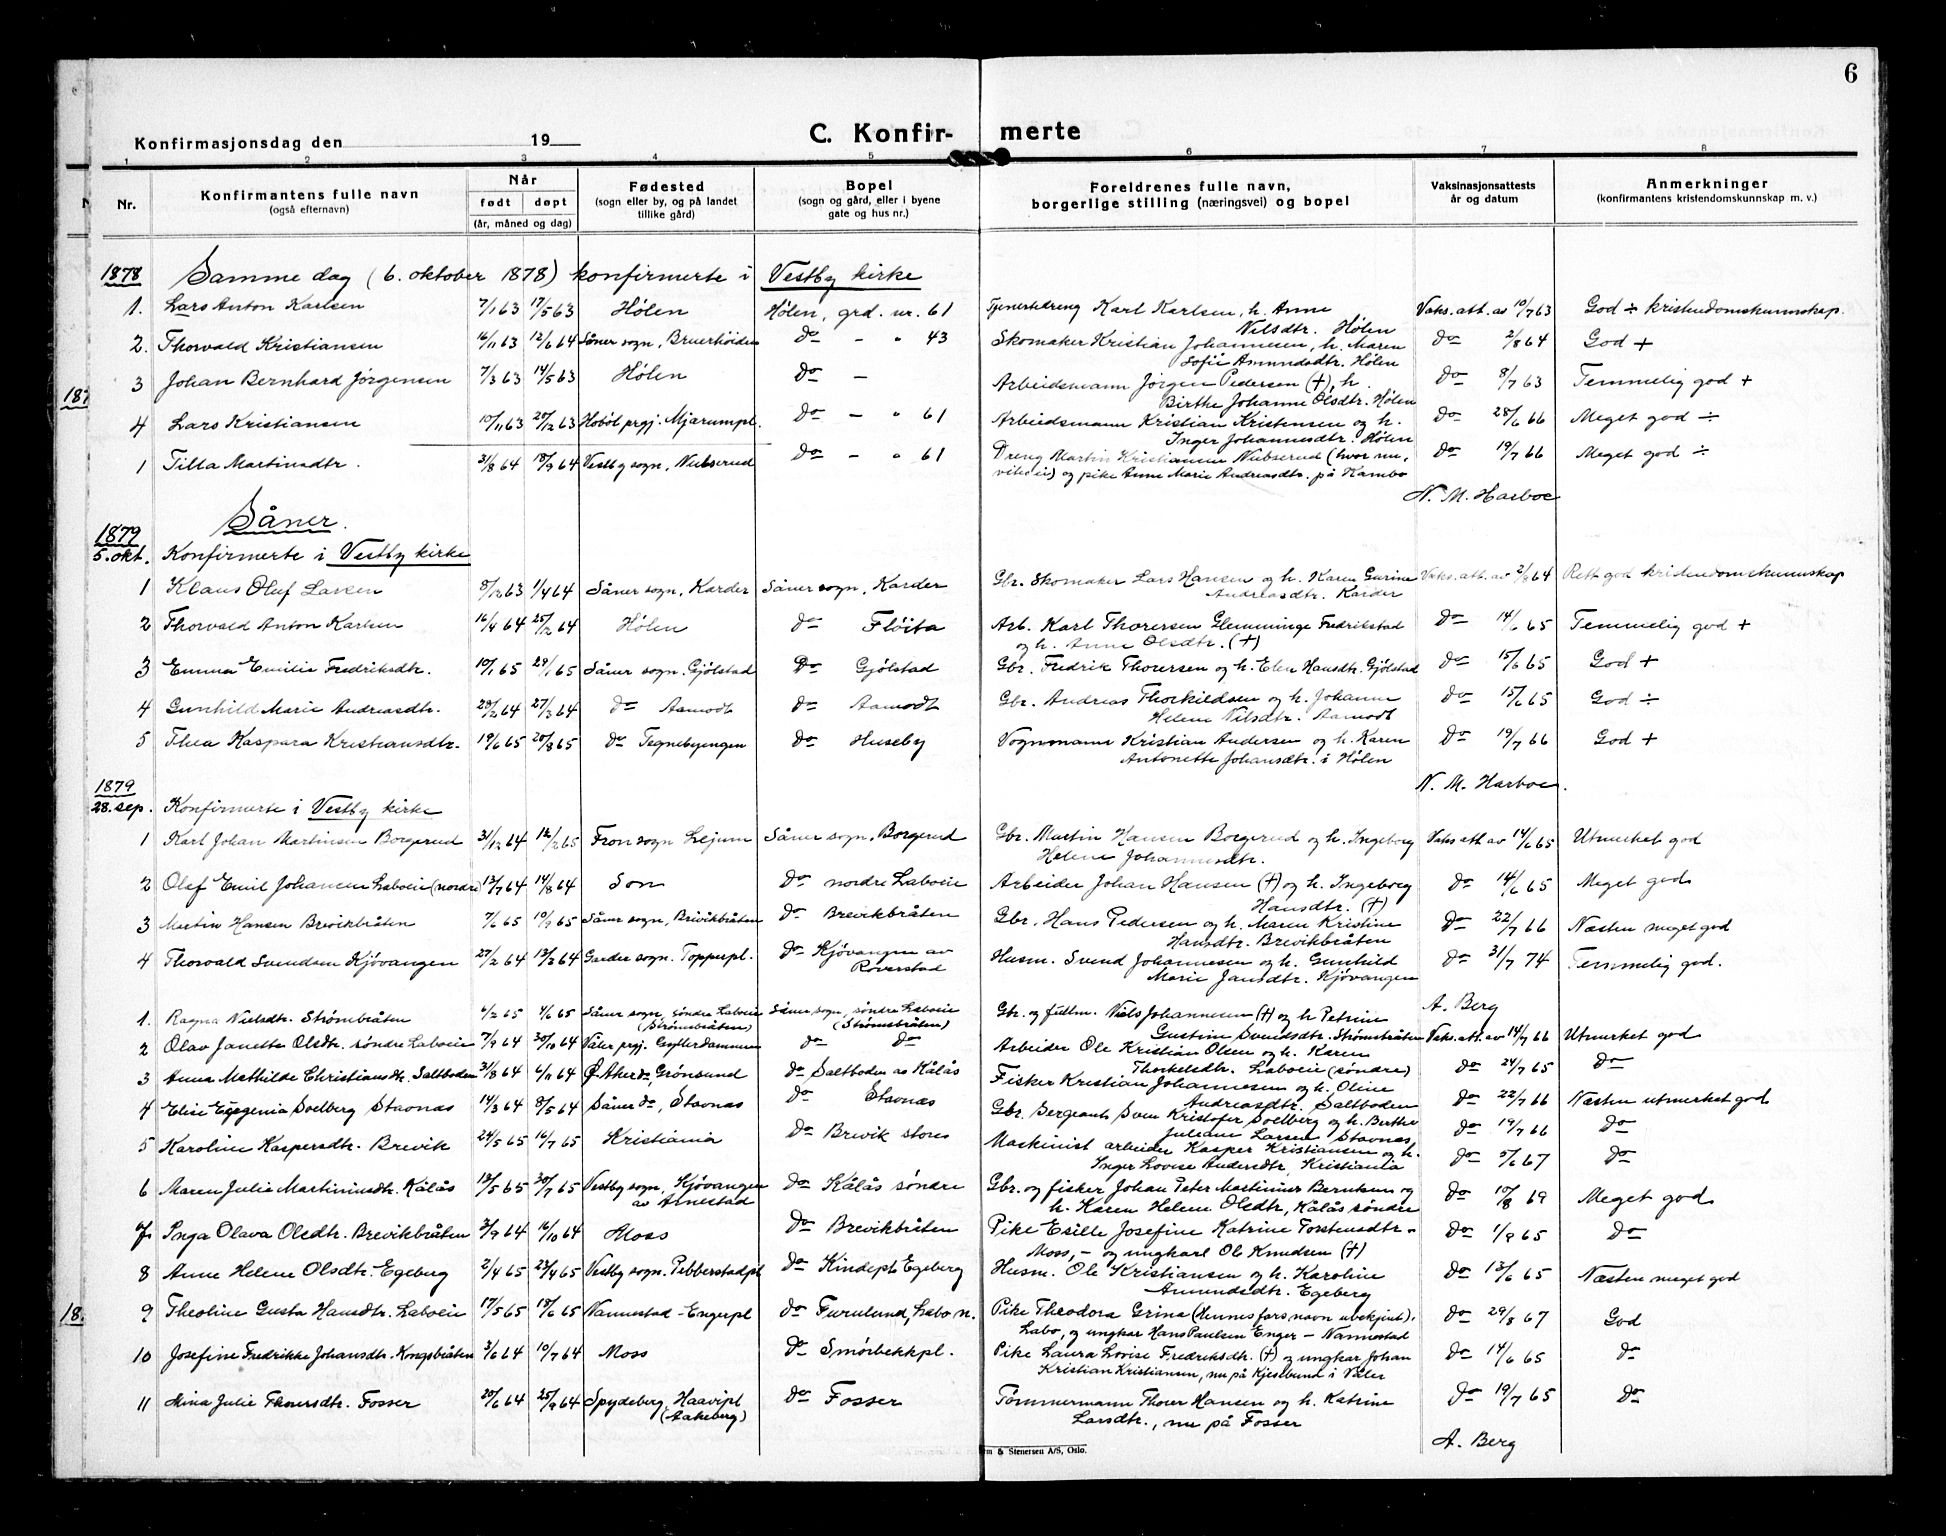 6
Konfirmasjonsdag den 19
C. Konfir- merte
1 2 3 4 5 6 7 8
Nr. Konfirmantens fulle navn (også efternavn) Når født døpt (år, måned og dag) Fødested (sogn eller by, og på landet tillike gård) Bopel (sogn og gård, eller i byene gate og hus nr.) Foreldrenes fulle navn, borgerlige stilling (næringsvei) og bopel Vaksinasjonsattests år og datum Anmerkninger (konfirmantens kristendomskunnskap m. v.)
1878 Samme dag (6. oktober 1878) konfirmerte i Vestby kirke
1. Lars Anton Karlsen 7/1 63 17/5 63 Hølen Hølen, grd. nr. 61 Tjenestedreng Karl Karlsen, h. Anne Nilsdtr. Hølen Vaks. att. av 10/7 63 God ÷ kristendomskunnskap.
2. Thorvald Kristiansen 16/11 63 12/6 64 Såner sogn, Bruerhöiden do - " 43 Skomaker Kristian Johannesen, h. Maren Sofie Amundsdtr. Hølen do 2/8 64 God +
3 Johan Bernhard Jørgensen 7/3 63 14/5 63 Hølen do - Arbeidsmann Jørgen Pedersen (+), h. Birthe Johanne Olsdtr. Hølen do 8/7 63 Temmelig god +
4 Lars Kristiansen 10/11 63 20/12 63 Hobøl prgj. Mjarumpl. do - " 61 Arbeidsmann Kristian Kristensen og h. Inger Johannesdtr. Hølen do 28/6 66 Meget god ÷
1 Tilla Martinsdtr. 31/8 64 18/9 64 Vestby sogn, Nubserud do - " 61 Dreng Martin Kristiansen Nubserud (hvor nu, vites ei) og pike Anne Marie Andreasdtr. på Kambo do 19/7 66 Meget god ÷
N. M. Harboe
Såner.
1879
5. okt. Konfirmerte i Vestby kirke
1 Klaus Oluf Larsen 8/12 63 1/4 64 Såner sogn, Karder Såner sogn, Karder Gbr. Skomaker Lars Hansen og h. Karen Gurine Andreasdtr. Karder Vaks. att. av 2/8 64 Rett god kristendomskunnskap
2 Thorvald Anton Karlsen 16/4 64 25/2 64 Hølen do Flöita Arb. Karl Thorersen Glemminge Fredrikstad og h. Anne Olsdtr. (+) do 14/6 65 Temmelig god +
3 Emma Emilie Fredriksdtr. 10/1 65 29/1 65 Såner sogn. Gjølstad Do Gjølstad Gbr. Fredrik Thorersen og h. Elen Hansdtr. Gjølstad do 15/6 65 God +
4 Gunhild Marie Andreasdtr. 28/2 64 27/3 64 do Aamodt do Aamodt Gbr. Andreas Thorkildsen og h. Johanne Helene Nilsdtr. Aamodt do 15/6 65 God ÷
5 Thea Kaspara Kristiansdtr. 19/6 65 20/8 65 do Tegnebyengen do Huseby Vognmann Kristian Andersen og h. Karen Antonette Johansdtr. i Hølen do 19/7 66 God +
N. M. Harboe.
1879
28. sep. Konfirmerte i Vestby kirke
1 Karl Johan Martinsen Borgerud 31/12 64 12/2 65 Fron sogn Lejum Såner sogn, Borgerud Gbr. Martin Hansen Borgerud og h. Ingeborg Helene Johannesdtr. Vaks att av 14/6 65 Utmerket god
2 Olef Emil Johansen Laboeie (nordre) 13/7 64 14/8 64 Son do nordre Laboeie Arbeider Johan Hansen (+) og h. Ingeborg Hansdtr. (+) do 14/6 65 Meget god
3 Martin Hansen Brevikbråten 7/6 65 10/9 65 Såner sogn, Brevikbråten do Brevikbråten Gbr. Hans Pedersen og h. Maren Kristine Hansdtr. Brevikbråten do 22/7 66 Næsten meget god
4 Thorvald Svendsen Kjövangen 27/2 64 13/2 64 Garder sogn. Topperpl. do Kjövangen av Röverstad Husm. Svend Johannesen og h. Gunhild Marie Jansdtr. Kjövangen do 31/7 74 Temmelig god.
A. Berg
1. Ragna Nielsdtr. Strömbråten 4/2 65 4/6 65 Såner sogn, søndre Laboeie (Strömsbråten) Såner sogn, søndre Laboeie (Strömsbråten) Gbr. og fullm. Niels Johannesen (+) og h Petrine Gustine Svendsdtr. Strömsbråten Vaks. att. av 14/7 66 Utmerket god
2 Olav Janette Olsdtr. söndre Laboeie 7/9 64 30/10 64 Våler prgj. Gryllerdammen do do Arbeider Ole Kristian Olsen og h. Karen Thorkelsdtr. Laboeie (søndre) do 24/7 65 do
3 Anna Mathilde Christiansdtr. Saltboden 31/8 64 6/11 64 Ø. Aker do, Grönsund do Saltboden av Kålås Fisker Kristian Johannesen og h. Oline Andreasdtr. Saltboden do 22/7 66 Næsten utmerket god
4 Elise Eegenia Soelberg Stavnæs 14/3 64 8/5 64 Såner do, Stavnæs do Stavnæs Gbr. Sergeant Sven Kristofer Soelberg og h. Berthe Juliane Larsen Stavnæs, do 19/7 66 do
5 Karoline Kaspersdtr. Brevik 24/5 65 16/7 65 Kristiania do Brevik store Maskinist arbeider Kasper Kristiansen og h. Inger Lovise Andersdtr. Kristiania do 5/6 67 do
6 Maren Julie Martiniusdtr. Kålås 13/5 65 30/7 65 Vestby sogn, Kjövangen av Arnestad do Kålås söndre Gbr. og fisker Johan Peter Martinius Berntsen og h. Karen Helene Olsdtr, Kålås söndre do 10/8 69 Meget god
7 Inga Olava Olsdtr. Brevikbråten 3/9 64 16/10 64 Moss do Brevikbråten Pike Esille Josefine Katrine Torstensdtr - Moss, - og ungkarl Ole Knudsen (+) do 1/9 65 do
8 Anne Helene Olsdtr. Egeberg 2/4 65 23/4 65 Vestby sogn. Pebberstadpl do Kindepl. Egeberg Husm. Ole Kristiansen og h. Karoline Amundsdtr. Egeberg do 13/6 65 Næsten meget god
9 Theoline Gusta Hansdtr. Laboeie 17/5 65 18/6 65 Nannestad - Engerpl do Furulund, Labo n. Pike Theodora Grina (hennes fars navn ubekjent). Labo, og ungkar Hans Paulsen Enger - Nannestad do 29/8 67 God
10 Josefine Fredrikke Johansdtr. Kongsbråten 3/6 64 10/7 64 Moss do Smörbekkpl. Pike Laura Lovise Fredriksdtr. (+) og ungkar Johan Kristian Kristiansen, nu på Kjeslund i Våler do 14/6 65 do
11 Mina Julie Thorersdtr. Fosser 20/6 64 25/9 64 Spydeberg, Haavipl (Aakeberg) do Fosser Tömmermann Thorer Hansen og h. Katrine Larsdtr., nu på Fosser do 19/7 65 do
A. Berg
& Stenersen A/S, Oslo.